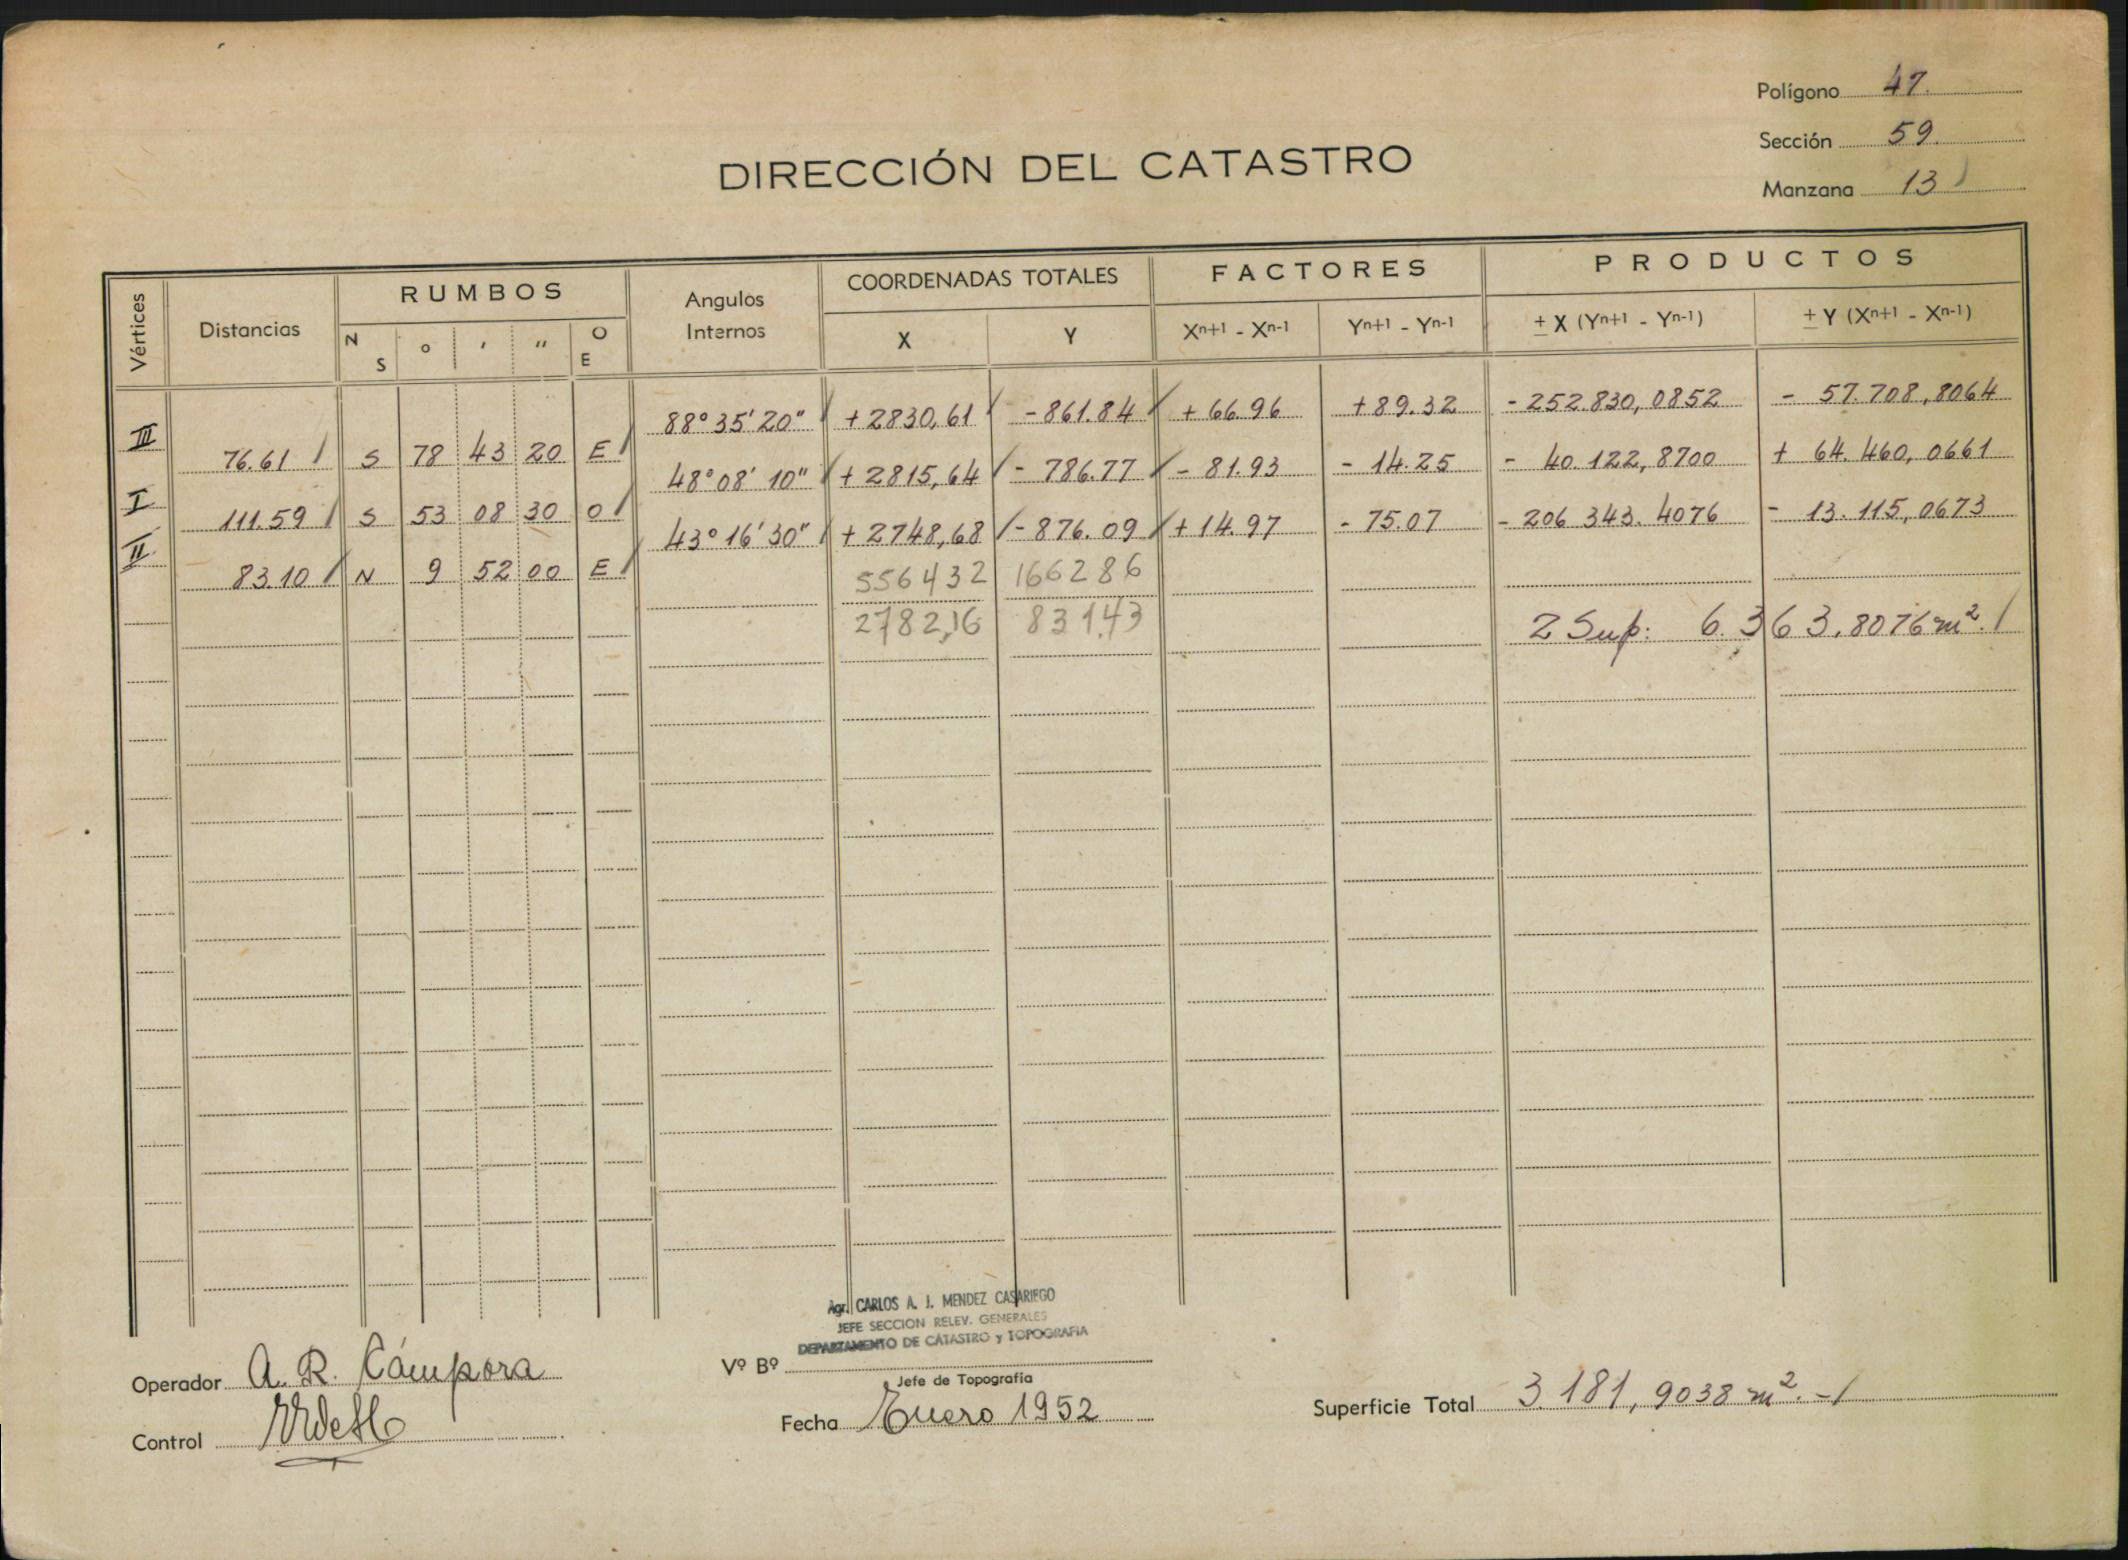 Polígono 47.
Sección 59.
Manzana 13
DIRECCIÓN DEL CATASTRO
Vértices
Distancias
RUMBOS
N S ° ' " O E
Angulos Internos
COORDENADAS TOTALES
X Y
FACTORES
Xn+1 - Xn-1 Yn+1 - Yn-1
PRODUCTOS
± X (Yn+1 - Yn-1) ± Y (Xn+1 - Xn-1)
III 88° 35' 20" +2830,61 -861.84 +66.96 +89.32 -252.830,0852 - 57.708,8064
76.61 S 78 43 20 E
I 48° 08' 10" +2815,64 - 786.77 - 81.93 - 14.25 - 40.122,8700 + 64.460,0661
111.59 S 53 08 30 O
II 43° 16' 30" +2748,68 -876.09 +14.97 - 75.07 - 206 343.4076 - 13.115,0673
83.10 N 9 52 00 E
556432 166286
2782,16 831,43
2 Sup: 6.363,8076 m².
Agr. CARLOS A. J. MENDEZ CASARIEGO
JEFE SECCION RELEV. GENERALES
DEPARTAMENTO DE CATASTRO y TOPOGRAFIA
Operador A. R. Cámpora
Vº Bº
Jefe de Topografía
Control
Fecha Enero 1952
Superficie Total 3.181,9038 m².-